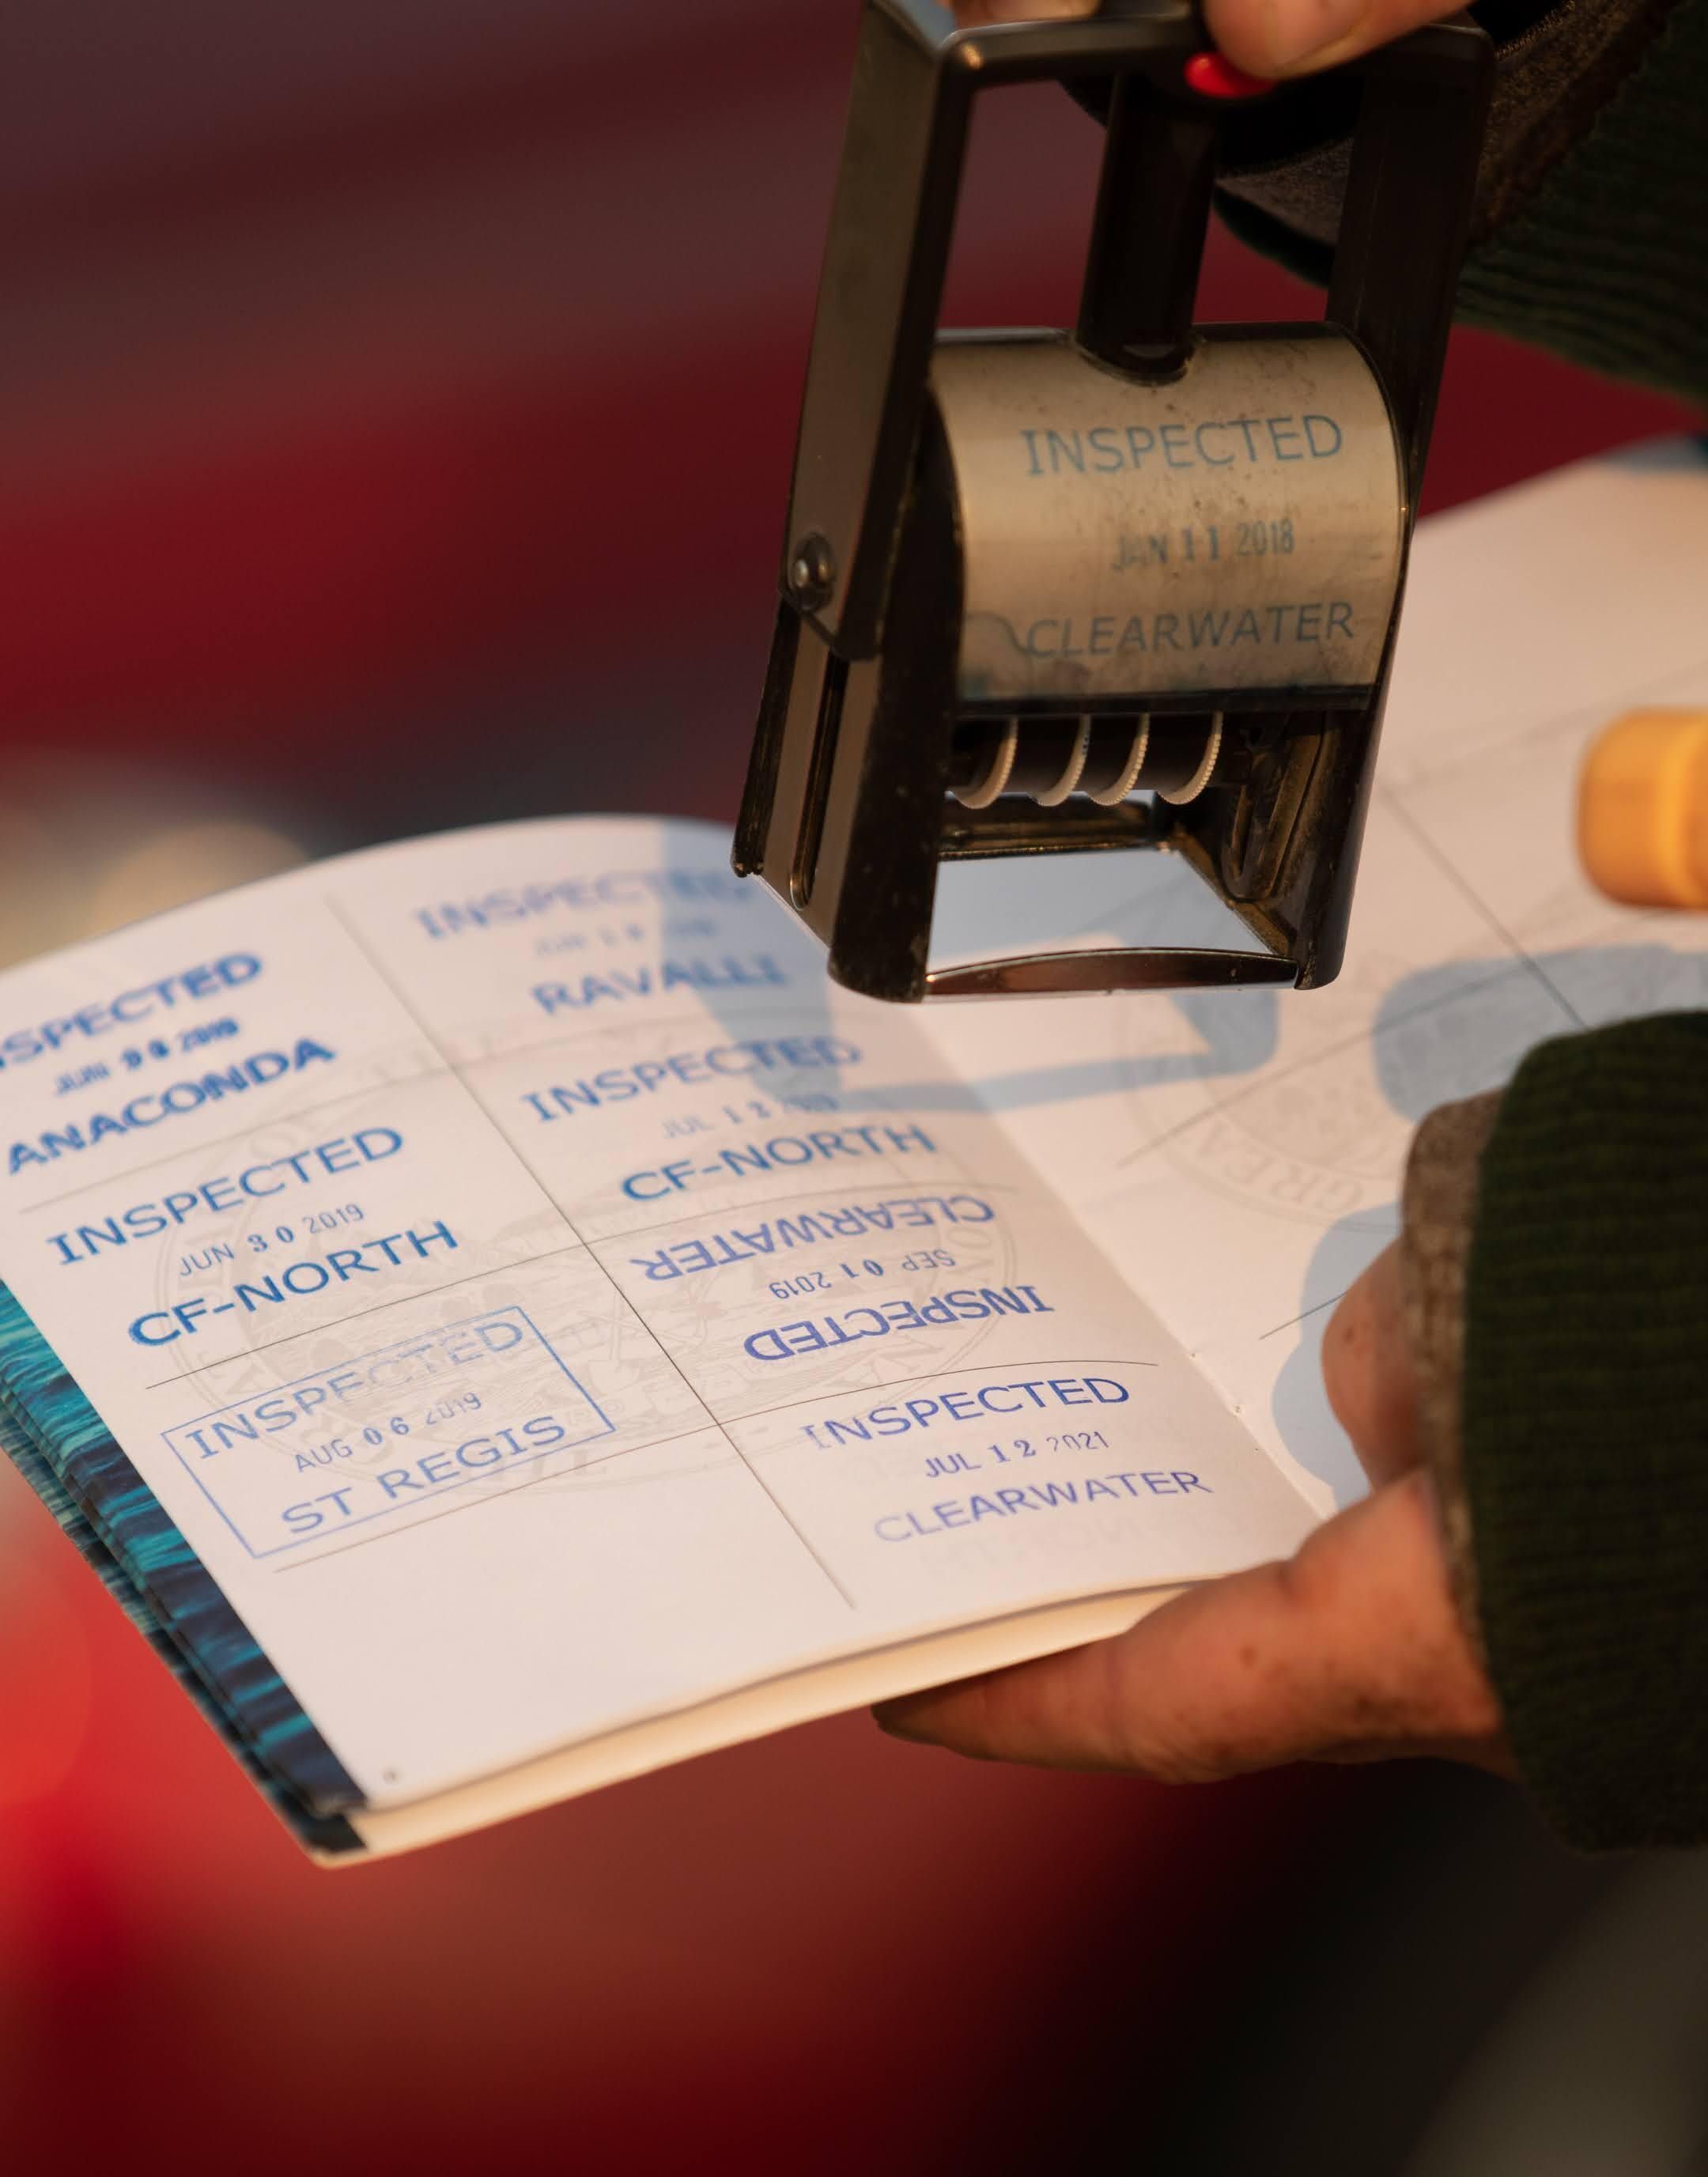 INSPECTED
JAN 11 2018
CLEARWATER
INSPECTED
RAVALLI
SPECTED
JUN 2019
ANACONDA
INSPECTED
JUL 12
CF-NORTH
INSPECTED
JUN 30 2019
CF-NORTH
INSPECTED
SEP 01 2019
CLEARWATER
INSPECTED
AUG 06 2019
ST REGIS
INSPECTED
JUL 12 2021
CLEARWATER
GREAT